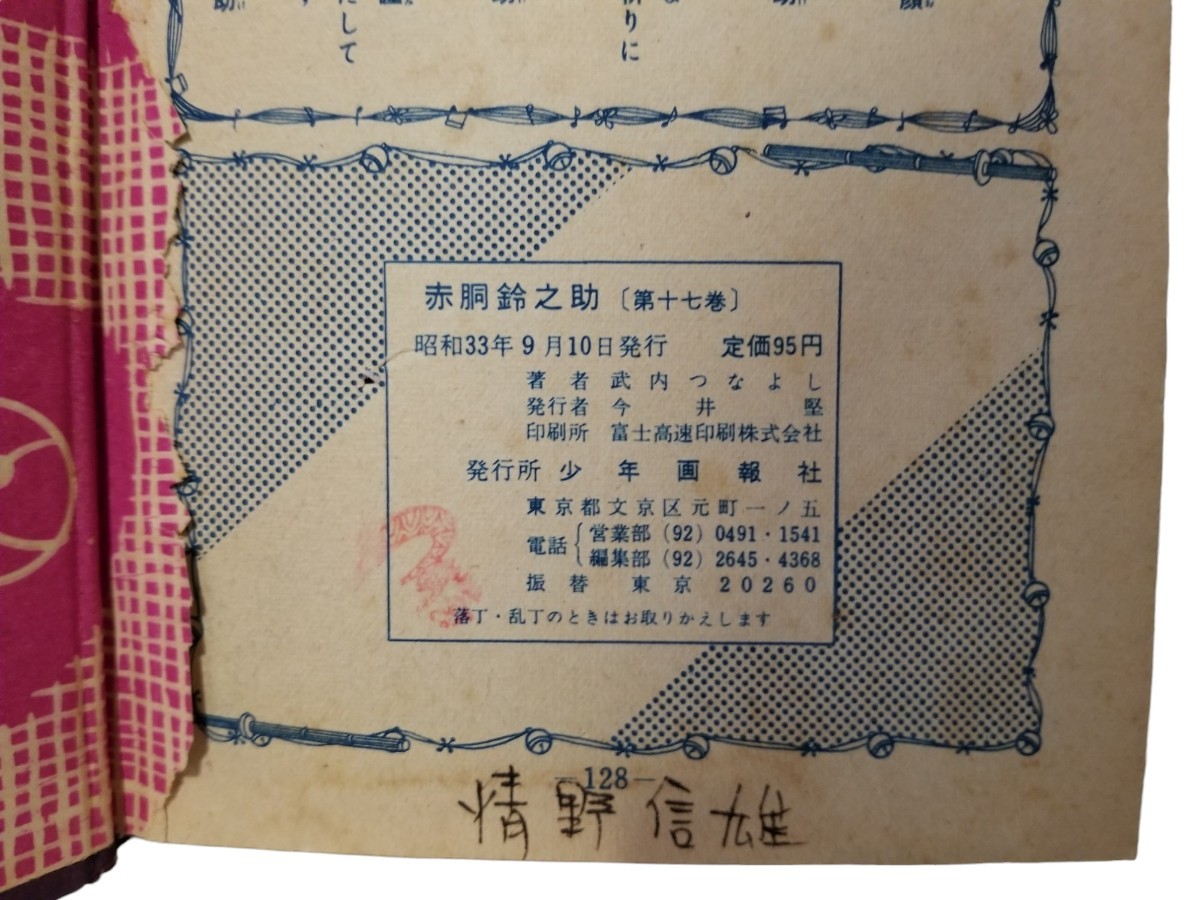 助
たして
助
祈りに
助
顔
赤胴鈴之助〔第十七巻〕
昭和33年9月10日発行 定価95円
著者 武内つなよし
発行者 今井堅
印刷所 富士高速印刷株式会社
発行所 少年画報社
東京都文京区元町一ノ五
電話{営業部(92)0491・1541
編集部(92)2645・4368
振替 東京 20260
落丁・乱丁のときはお取りかえします
—128—
情野信雄